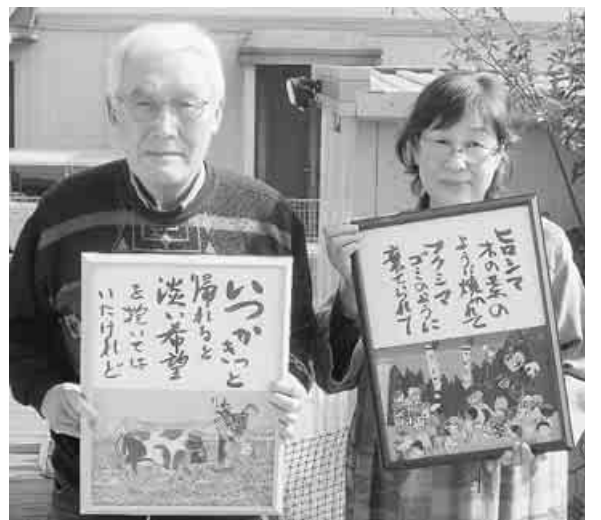 いつかきっと
帰れると
淡い希望
を抱いては
いたけれど
ヒロシマ
木の葉の
ように焼かれて
フクシマ
ゴミのように
棄てられて